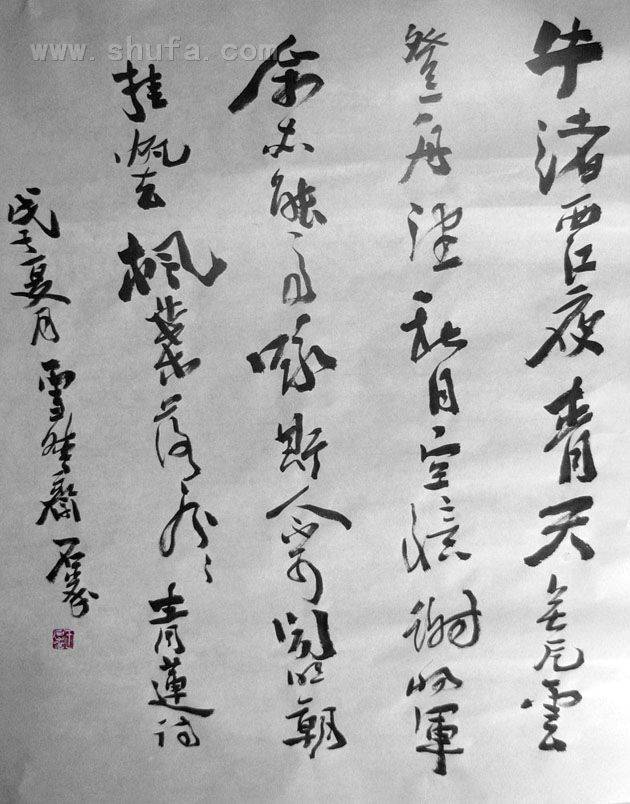 www.shufa.com
牛渚西江夜青天無片雲
登舟望秋月空憶謝將軍
余亦能高咏斯人不可聞明朝
挂帆去楓葉落紛々青蓮詩
戊子夏月雪齋石